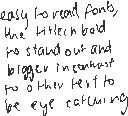 easy to read fonts,
the title in bold
to stand out and
bigger in contrast
to other text to
be eye catching